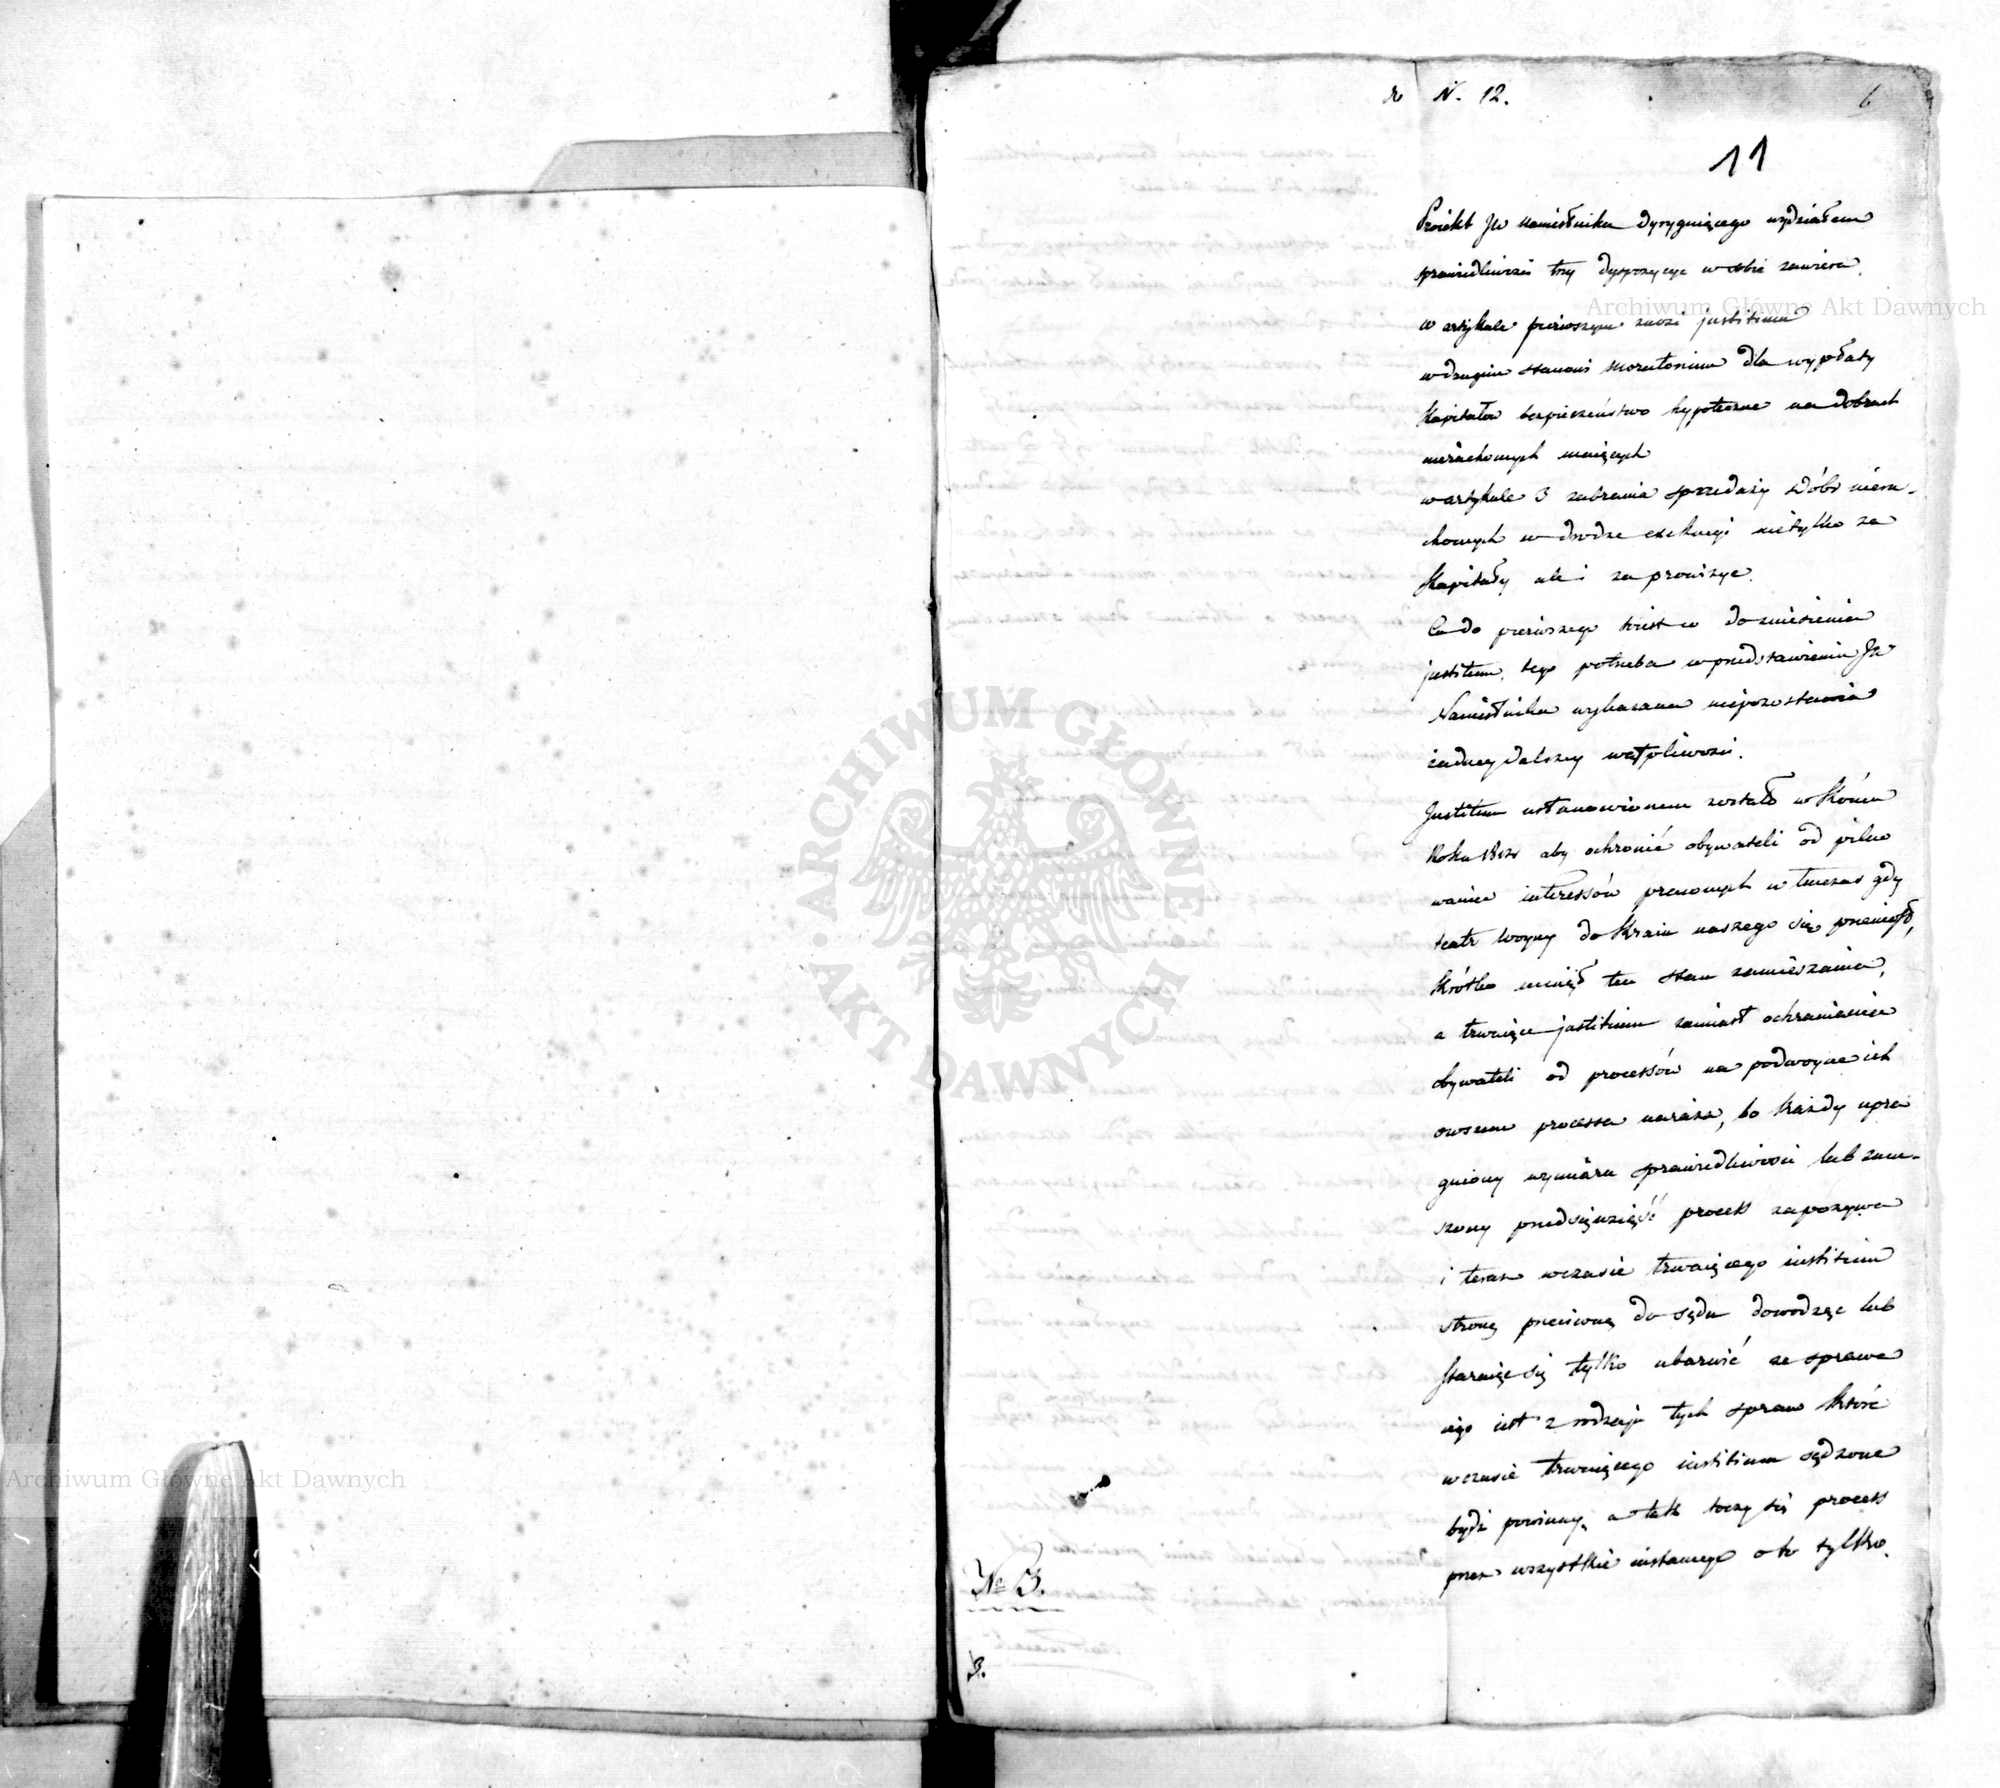 N. 12.
6
11
Proiekt JW Namiestnika dyryguiącego wydziałem
sprawiedliwości trzy dyspozycye w sobie zawiera.
w artykule pierwszym znosi justitium
w drugim stanowi moratorium dla wypłaty
kapitałów bezpieczeństwo hypoteczne na dobrach
nieruchomych maiących
w artykule 3 zabrania sprzedaży dóbr nieru-
chomych w drodze exekucyi nietylko za
kapitały ale i za prowizye.
Co do pierwszego to iest co do zniesienia
justitium, tego potrzeba w przedstawieniu JW
Namiestnika wykazana niepozostawia
żadney dalszey wątpliwości.
Justitium ustanowionem zostało w Końcu
Roku 1812 aby ochronić obywateli od pilno
wania interessów prawnych w tenczas gdy
teatr woyny do Kraiu naszego się przeniósł,
krótko minął ten stan zamieszania,
a trwaiące justitium zamiast ochraniania
obywateli od processów na podwoyne ich
owszem processa naraża, bo każdy upra
gniony wymiaru sprawiedliwości lub zmu-
szony przedsięwziąść process zapozywa
i teraz w czasie trwaiącego iustitium
stronę przeciwną do sądu dowodząc lub
staraiąc się tylko ubarwić ze sprawa
iego iest z rodzaju tych spraw które
w czasie trwaiącego iustitium sądzone
bydź powinny, a tak toczy się process
przez wszystkie instancye o to tylko
No 3.
3.
Archiwum Główne Akt Dawnych
ARCHIWUM GŁÓWNE
AKT DAWNYCH
Archiwum Główne Akt Dawnych